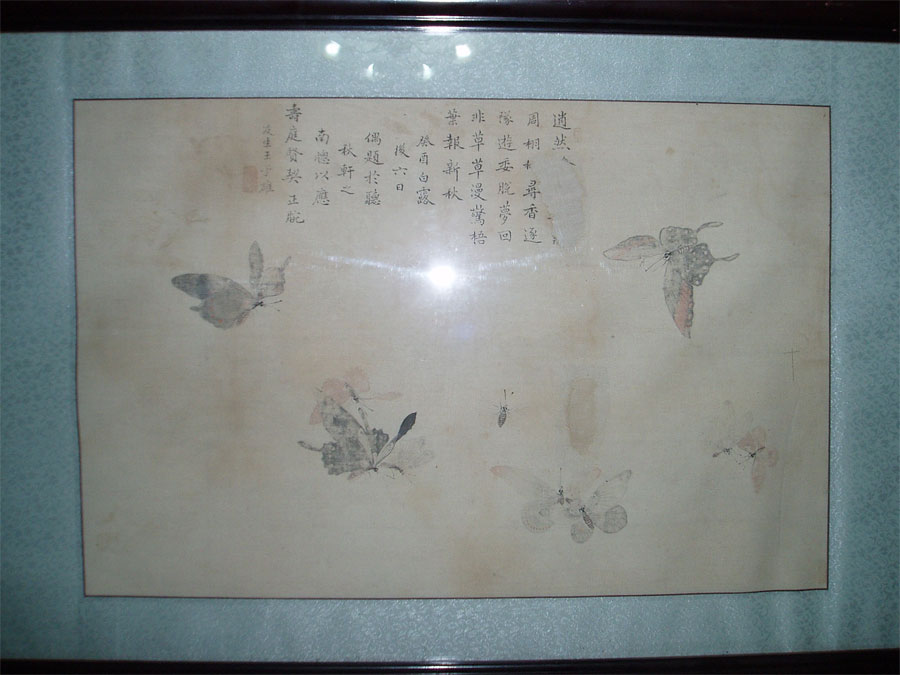 逍然
周栩 尋香逐
豫遊委脫夢回
非草草漫驚梧
葉報新秋
癸酉白露
後六日
偶題於聽
秋軒之
南牕以應
壽庭督契正腕
弟王